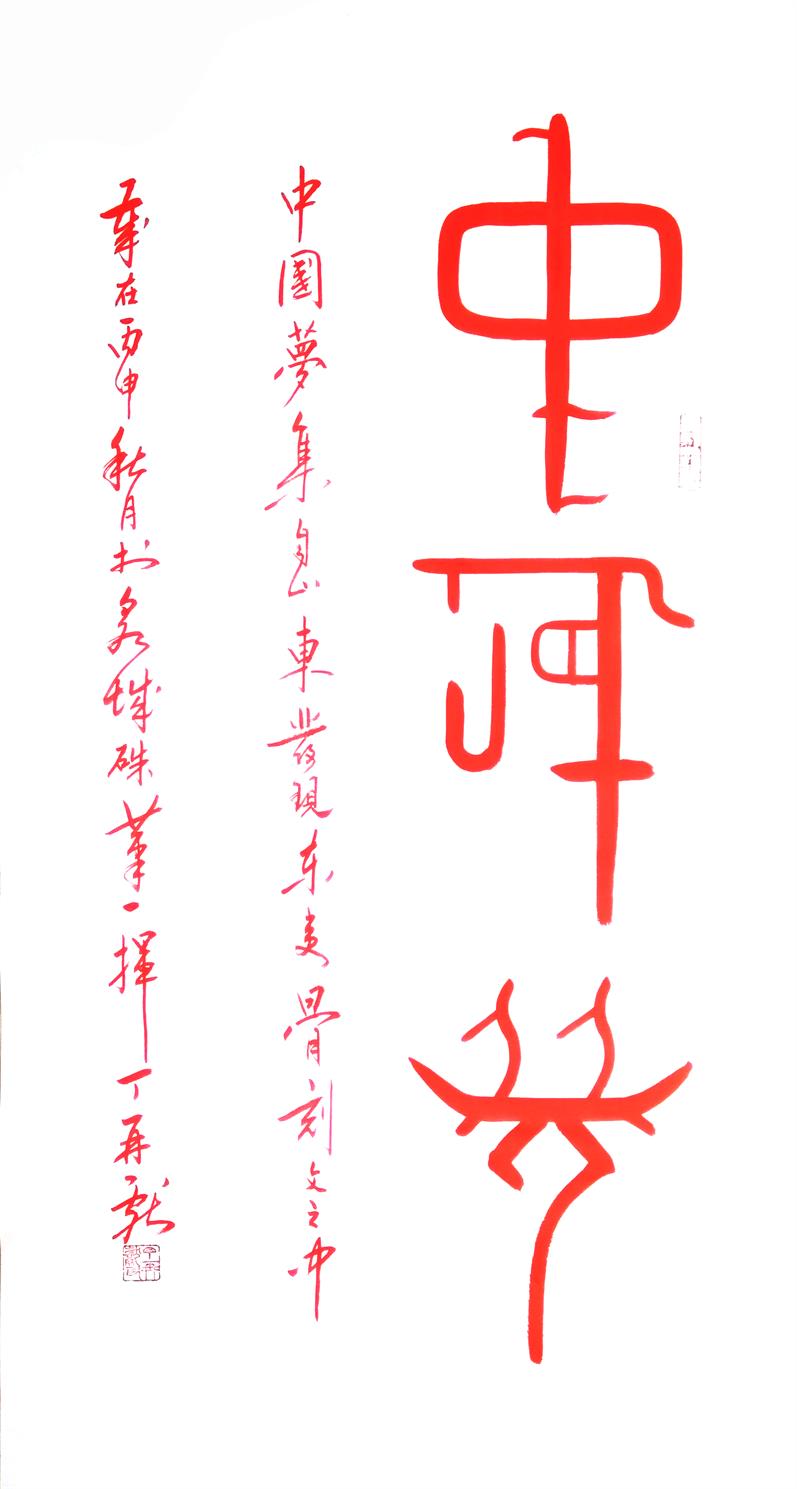 中國夢
中國夢集自山東發現东夷骨刻文之中
歲在丙申秋月於泉城硃筆一揮丁再献